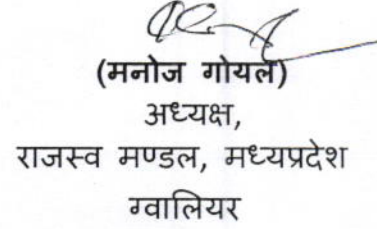 (मनोज गोयल)
अध्यक्ष,
राजस्व मण्डल, मध्यप्रदेश
ग्वालियर